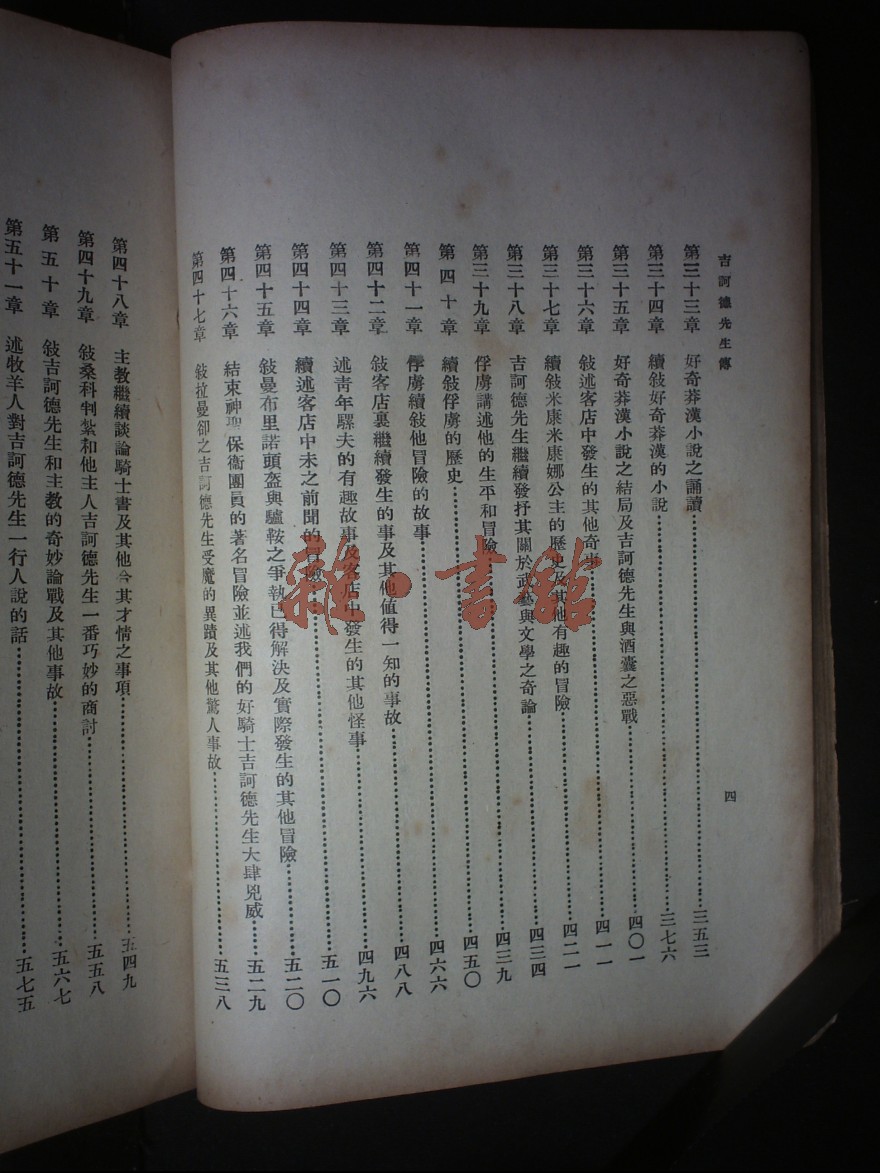 吉訶德先生傳
四
第三十三章 好奇莽漢小說之誦讀……三五三
第三十四章 續敍好奇莽漢的小說……三七六
第三十五章 好奇莽漢小說之結局及吉訶德先生與酒囊之惡戰……四〇一
第三十六章 敍述客店中發生的其他奇事……四一一
第三十七章 續敍米康米康娜公主的歷史及其他有趣的冒險……四二一
第三十八章 吉訶德先生繼續發抒其關於武藝與文學之奇論……四三四
第三十九章 俘虜講述他的生平和冒險……四三九
第四十章 續敍俘虜的歷史……四五〇
第四十一章 俘虜續敍他冒險的故事……四六六
第四十二章 敍客店裏繼續發生的事及其他值得一知的事故……四八八
第四十三章 述青年騾夫的有趣故事及客店中發生的其他怪事……四九六
第四十四章 續述客店中未之前聞的冒險……五一〇
第四十五章 敍曼布里諾頭盔與驢鞍之爭執已得解決及實際發生的其他冒險……五二〇
第四十六章 結束神聖保衞團員的著名冒險並述我們的好騎士吉訶德先生大肆兇威……五二九
第四十七章 敍拉曼卻之吉訶德先生受魔的異蹟及其他驚人事故……五三八
第四十八章 主教繼續談論騎士書及其他合其才情之事項……五四九
第四十九章 敍桑科判紮和他主人吉訶德先生一番巧妙的商討……五五八
第五十章 敍吉訶德先生和主教的奇妙論戰及其他事故……五六七
第五十一章 述牧羊人對吉訶德先生一行人說的話……五七五
雜·書館